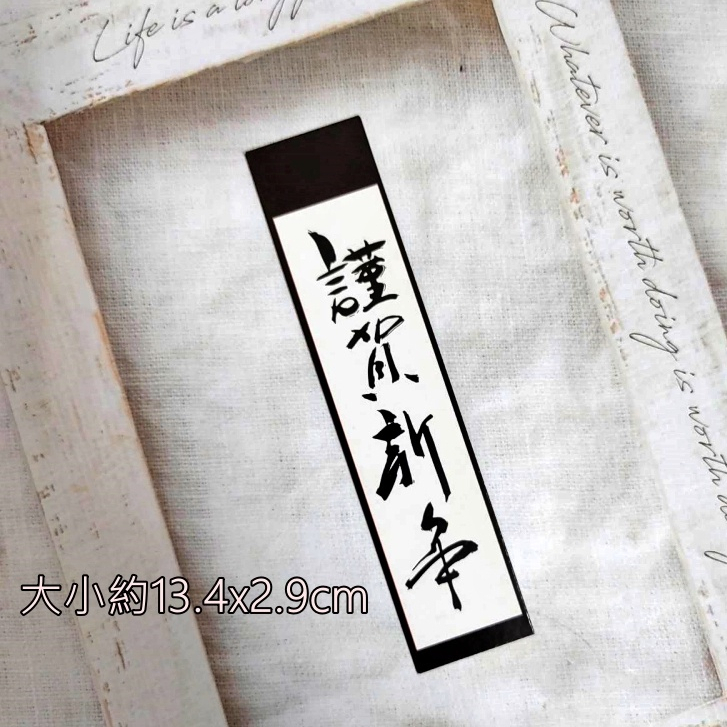 Life is a
Whatever is worth doing is worth
謹賀新年
大小約13.4x2.9cm